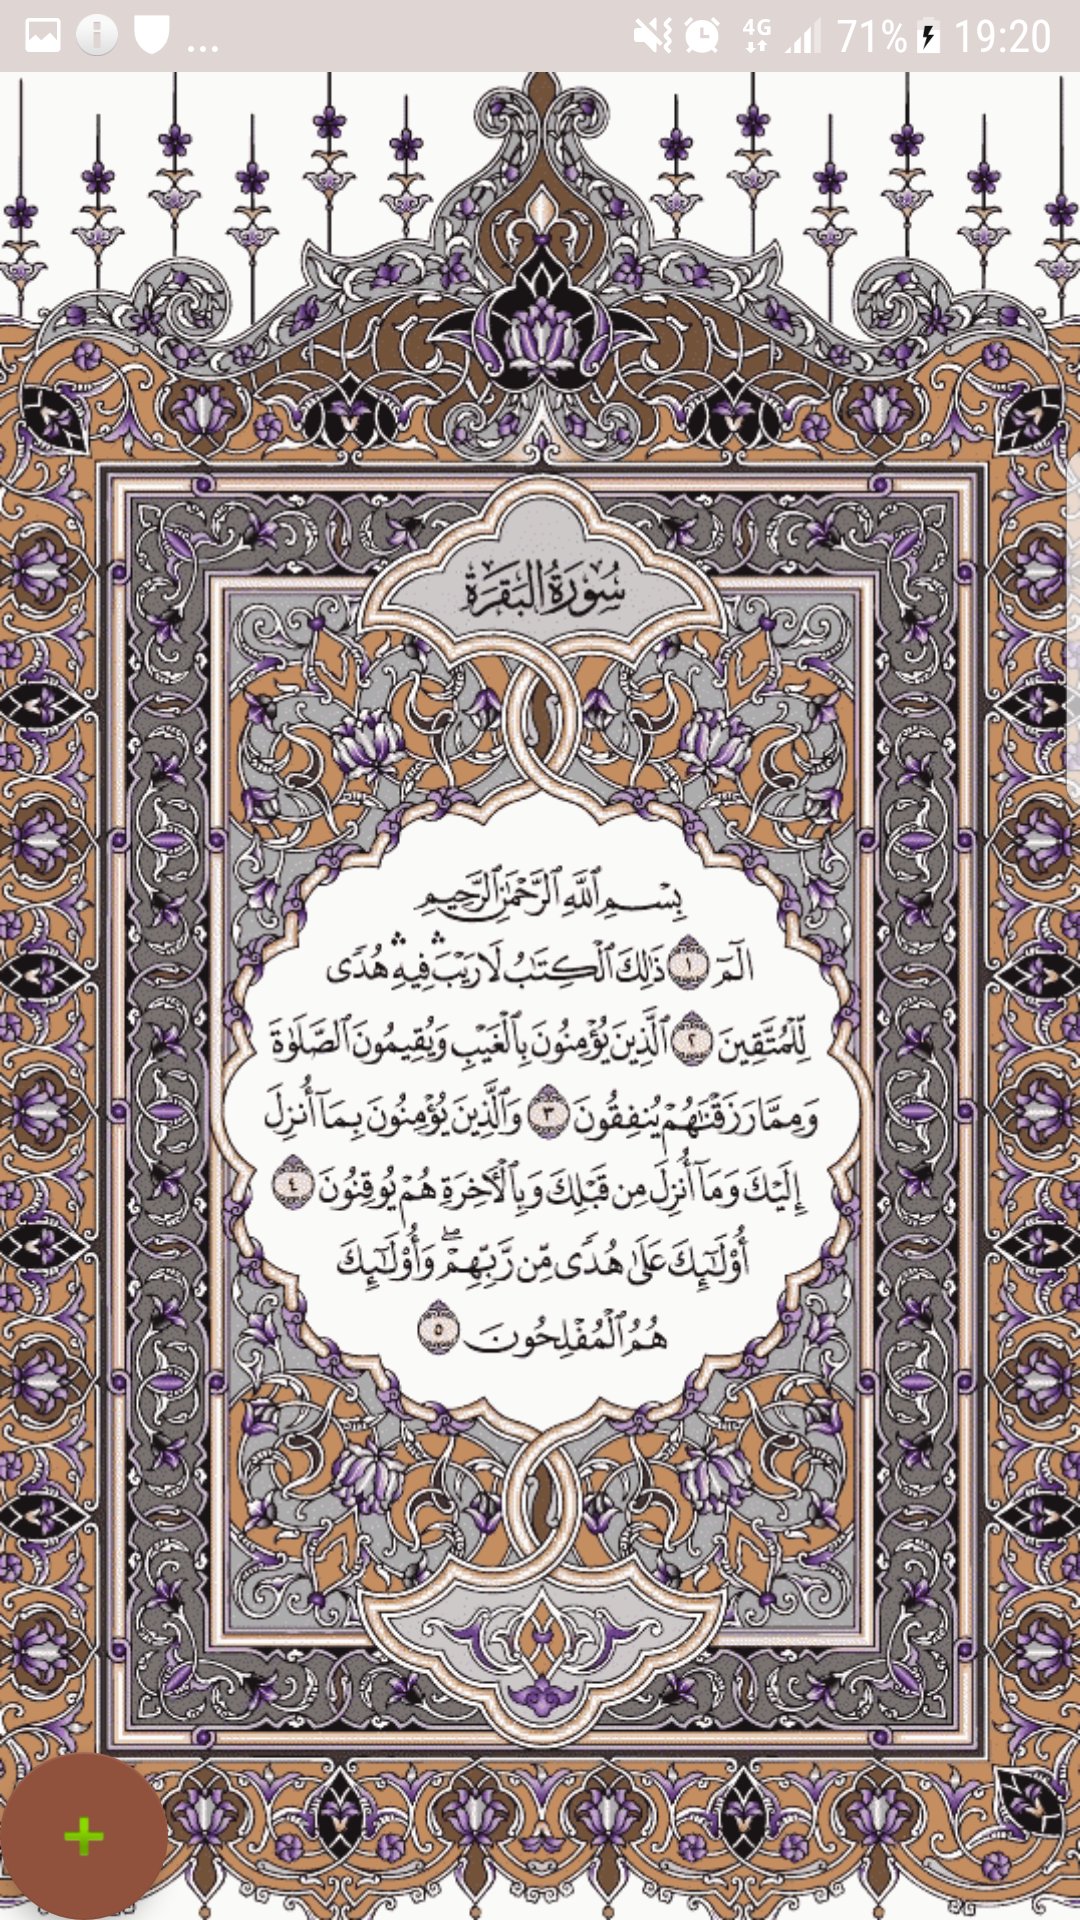 ... 4G 71% 19:20
سُورَةُ البَقَرَةِ
بِسْمِ ٱللَّهِ ٱلرَّحْمَٰنِ ٱلرَّحِيمِ
الٓمٓ ١ ذَٰلِكَ ٱلْكِتَٰبُ لَا رَيْبَ ۛ فِيهِ ۛ هُدًى
لِّلْمُتَّقِينَ ٢ ٱلَّذِينَ يُؤْمِنُونَ بِٱلْغَيْبِ وَيُقِيمُونَ ٱلصَّلَوٰةَ
وَمِمَّا رَزَقْنَٰهُمْ يُنفِقُونَ ٣ وَٱلَّذِينَ يُؤْمِنُونَ بِمَآ أُنزِلَ
إِلَيْكَ وَمَآ أُنزِلَ مِن قَبْلِكَ وَبِٱلْءَاخِرَةِ هُمْ يُوقِنُونَ ٤
أُو۟لَٰٓئِكَ عَلَىٰ هُدًى مِّن رَّبِّهِمْ ۖ وَأُو۟لَٰٓئِكَ
هُمُ ٱلْمُفْلِحُونَ ٥